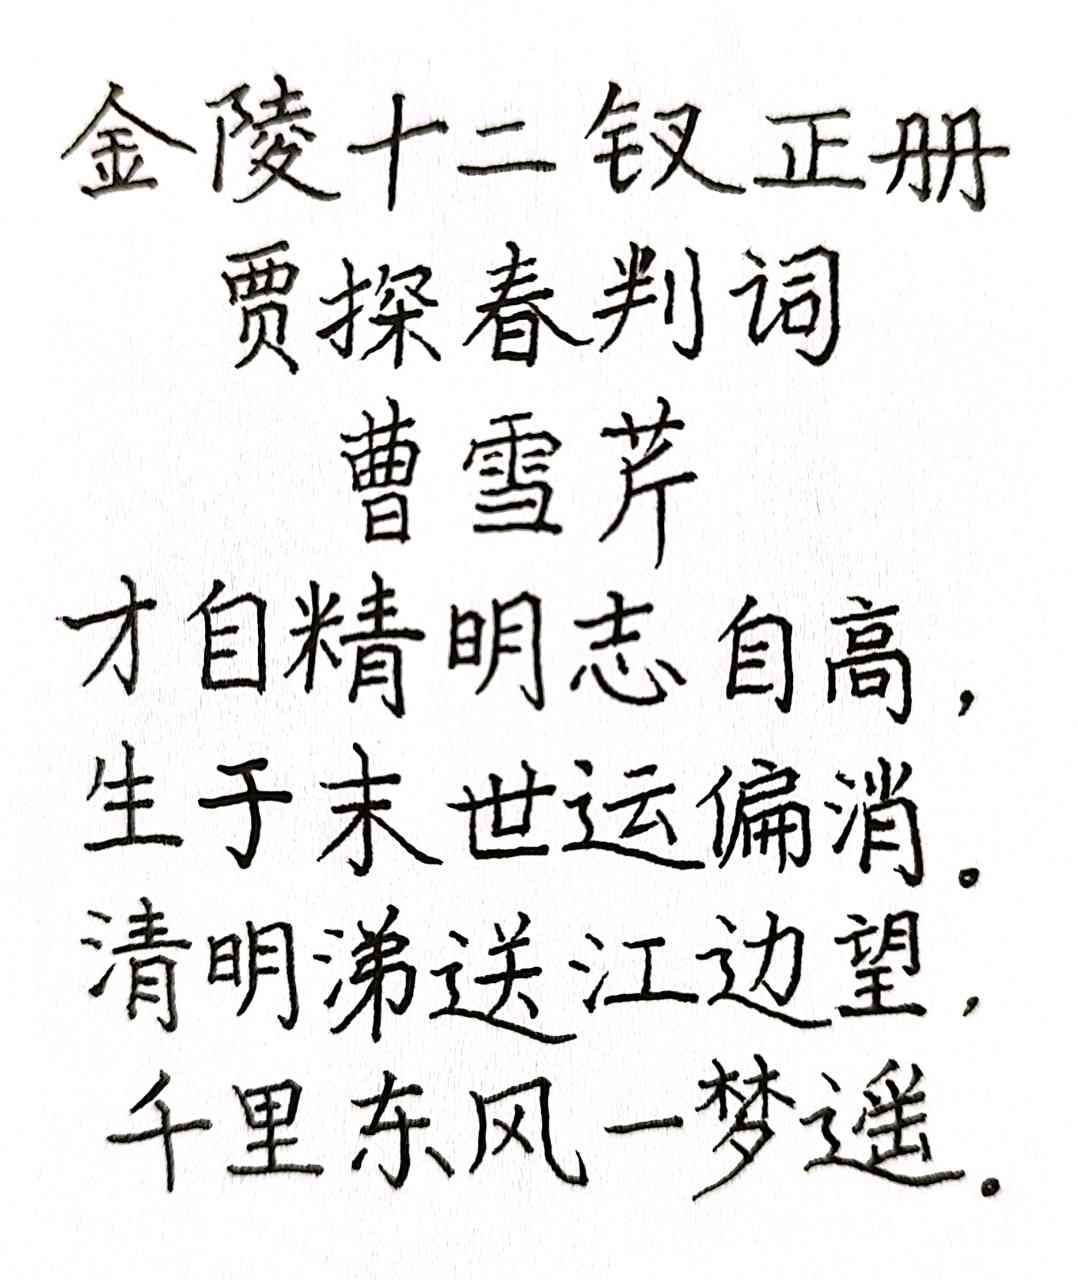 金陵十二钗正册
贾探春判词
曹雪芹
才自精明志自高，
生于末世运偏消。
清明涕送江边望，
千里东风一梦遥.